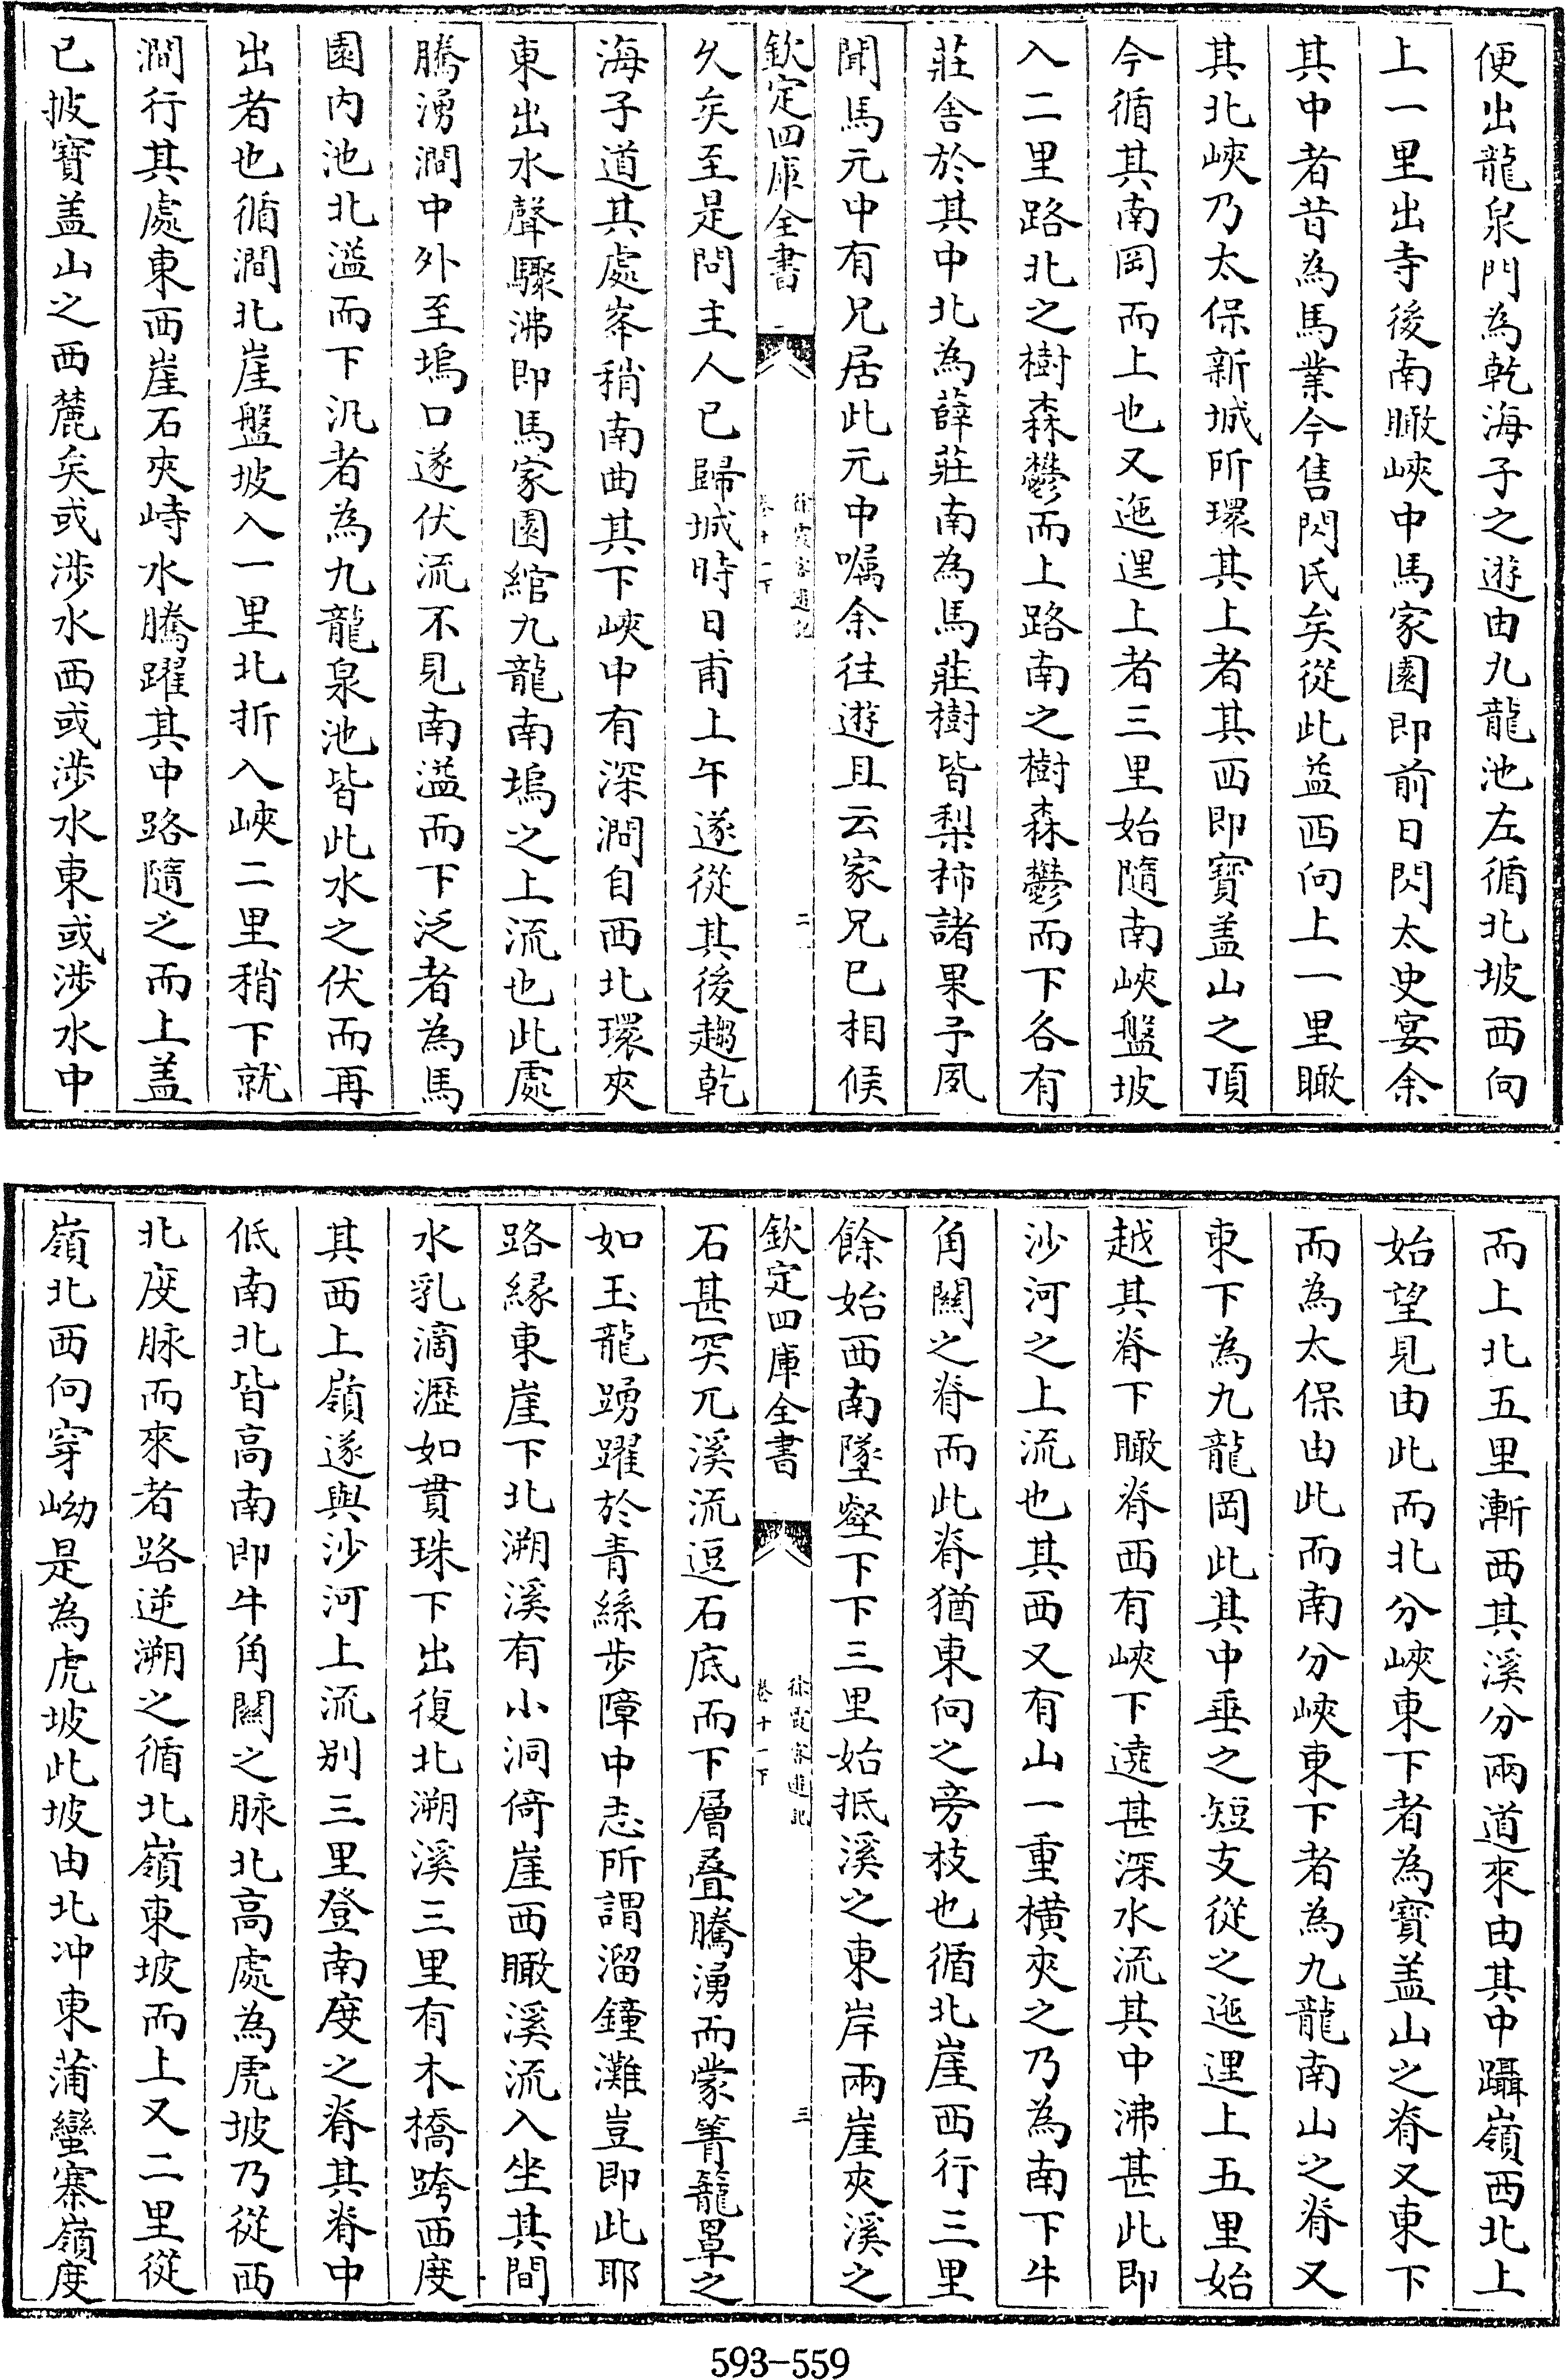 便出龍泉門為乾海子之遊由九龍池左循北坡西向
上一里出寺後南瞰峽中馬家園即前日閃太史宴余
其中者昔為馬業今售閃氏矣從此益西向上一里瞰
其北峽乃太保新城所環其上者其西即寶盖山之頂
今循其南岡而上也又迤邐上者三里始隨南峽盤坡
入二里路北之樹森鬱而上路南之樹森鬱而下各有
莊舍於其中北為薛莊南為馬莊樹皆梨柿諸果予夙
聞馬元中有兄居此元中囑余往遊且云家兄已相候
欽定四庫全書
徐霞客遊記
卷十一下
二
久矣至是問主人已歸城時日甫上午遂從其後趨乾
海子道其處峯稍南曲其下峽中有深澗自西北環夾
東出水聲驟沸即馬家園綰九龍南塢之上流也此處
騰湧澗中外至塢口遂伏流不見南溢而下泛者為馬
園內池北溢而下汎者為九龍泉池皆此水之伏而再
出者也循澗北崖盤坡入一里北折入峽二里稍下就
澗行其處東西崖石夾峙水騰躍其中路隨之而上盖
已披寶盖山之西麓矣或涉水西或涉水東或涉水中
而上北五里漸西其溪分兩道來由其中躡嶺西北上
始望見由此而北分峽東下者為寶盖山之脊又東下
而為太保由此而南分峽東下者為九龍南山之脊又
東下為九龍岡此其中垂之短支從之迤邐上五里始
越其脊下瞰脊西有峽下遶甚深水流其中沸甚此即
沙河之上流也其西又有山一重橫夾之乃為南下牛
角關之脊而此脊猶東向之旁枝也循北崖西行三里
餘始西南墜壑下下三里始抵溪之東岸兩崖夾溪之
欽定四庫全書
徐霞客遊記
卷十一下
三
石甚突兀溪流逗石底而下層疊騰湧而蒙箐籠罩之
如玉龍踴躍於青絲步障中志所謂溜鐘灘豈即此耶
路緣東崖下北溯溪有小洞倚崖西瞰溪流入坐其間
水乳滴瀝如貫珠下出復北溯溪三里有木橋跨西度
其西上嶺遂與沙河上流别三里登南度之脊其脊中
低南北皆高南即牛角關之脉北高處為虎坡乃從西
北度脉而來者路逆溯之循北嶺東坡而上又二里從
嶺北西向穿坳是為虎坡此坡由北冲東蒲蠻寨嶺度
593-559